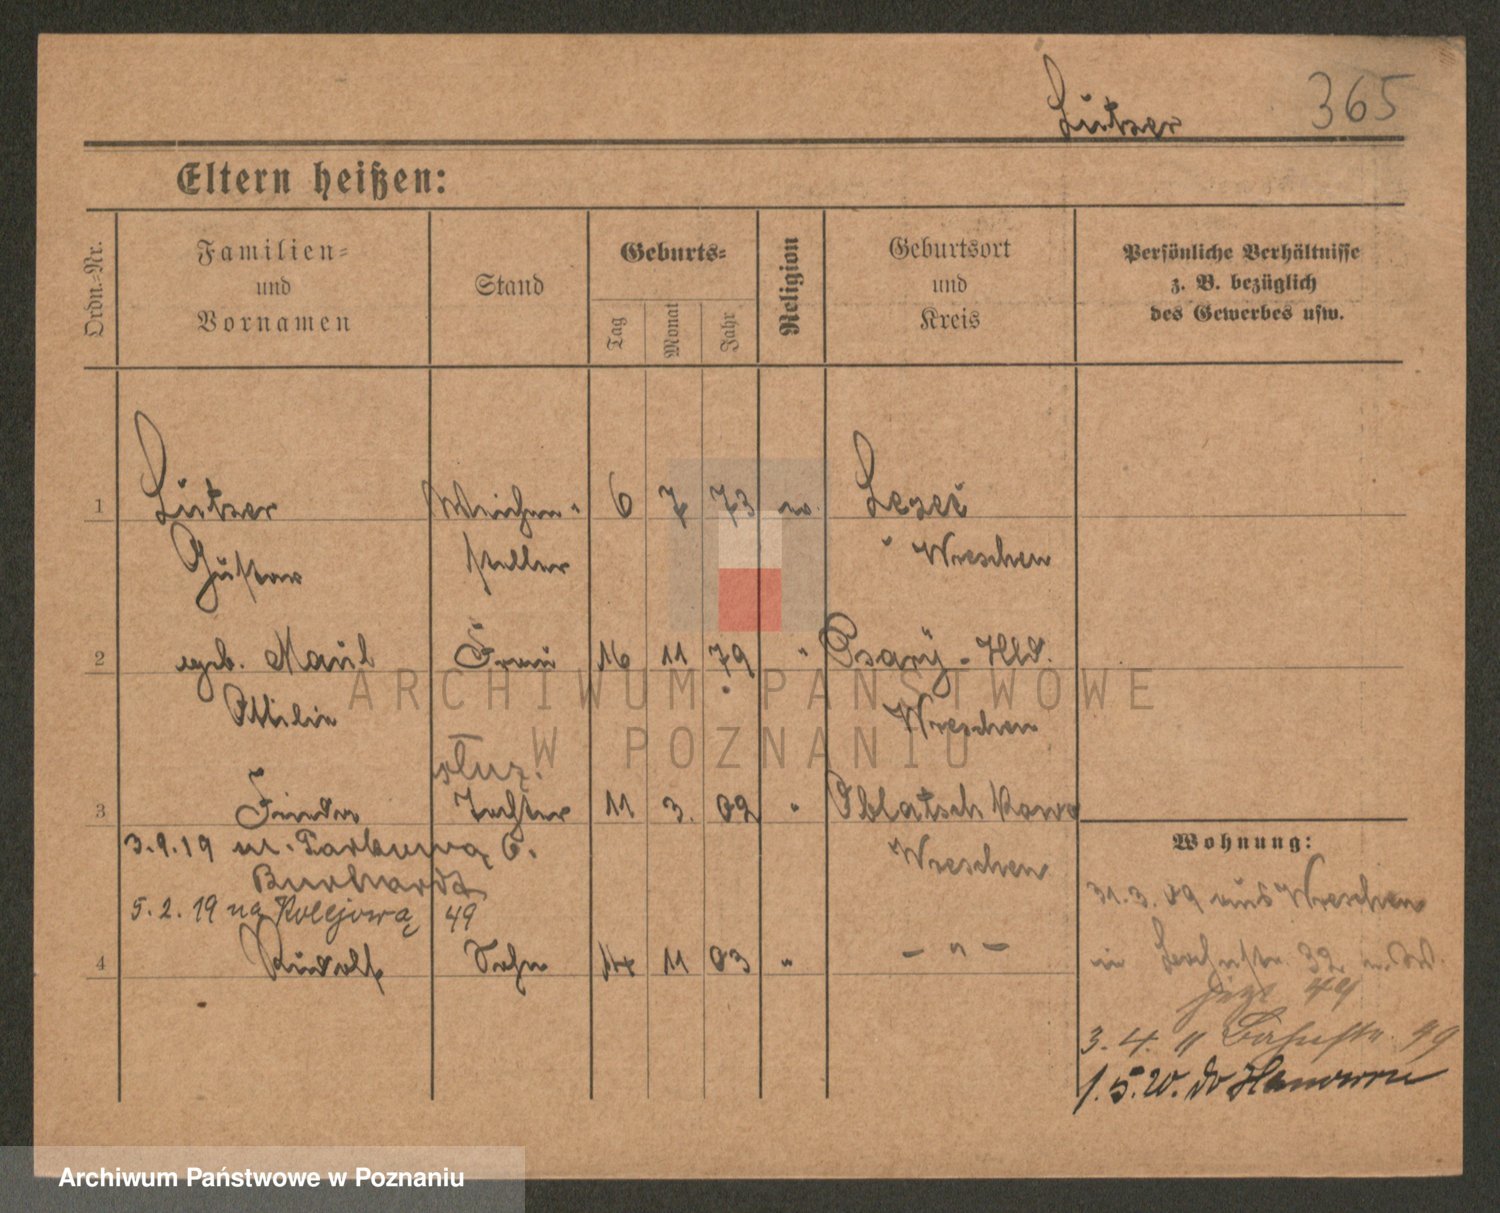 Lutzer 365
Eltern heißen:
Ordn.-Nr.
Familien=
und
Vornamen
Stand
Geburts=
Tag
Monat
Jahr
Religion
Geburtsort
und
Kreis
Persönliche Verhältnisse
z. B. bezüglich
des Gewerbes usw.
1 Lutzer Weichen- 6 7 73 ev.
Gustav steller Wreschen
2 geb. Maul Frau 16 11 79 " Psary - Hld.
Ottilie Wreschen
służ.
3 Tochter 11 3. 02 "
Wreschen
3.9.19
Burharda
5.2.19 na Kolejową 49
4 Rudolf Sohn 14 11 03 " - " -
Wohnung:
31.3.09 aus Wreschen
in 32
jetzt 49
3. 4. 11 Bahnstr. 49
1.5.20. do Hanower
ARCHIWUM PAŃSTWOWE
W POZNANIU
Archiwum Państwowe w Poznaniu